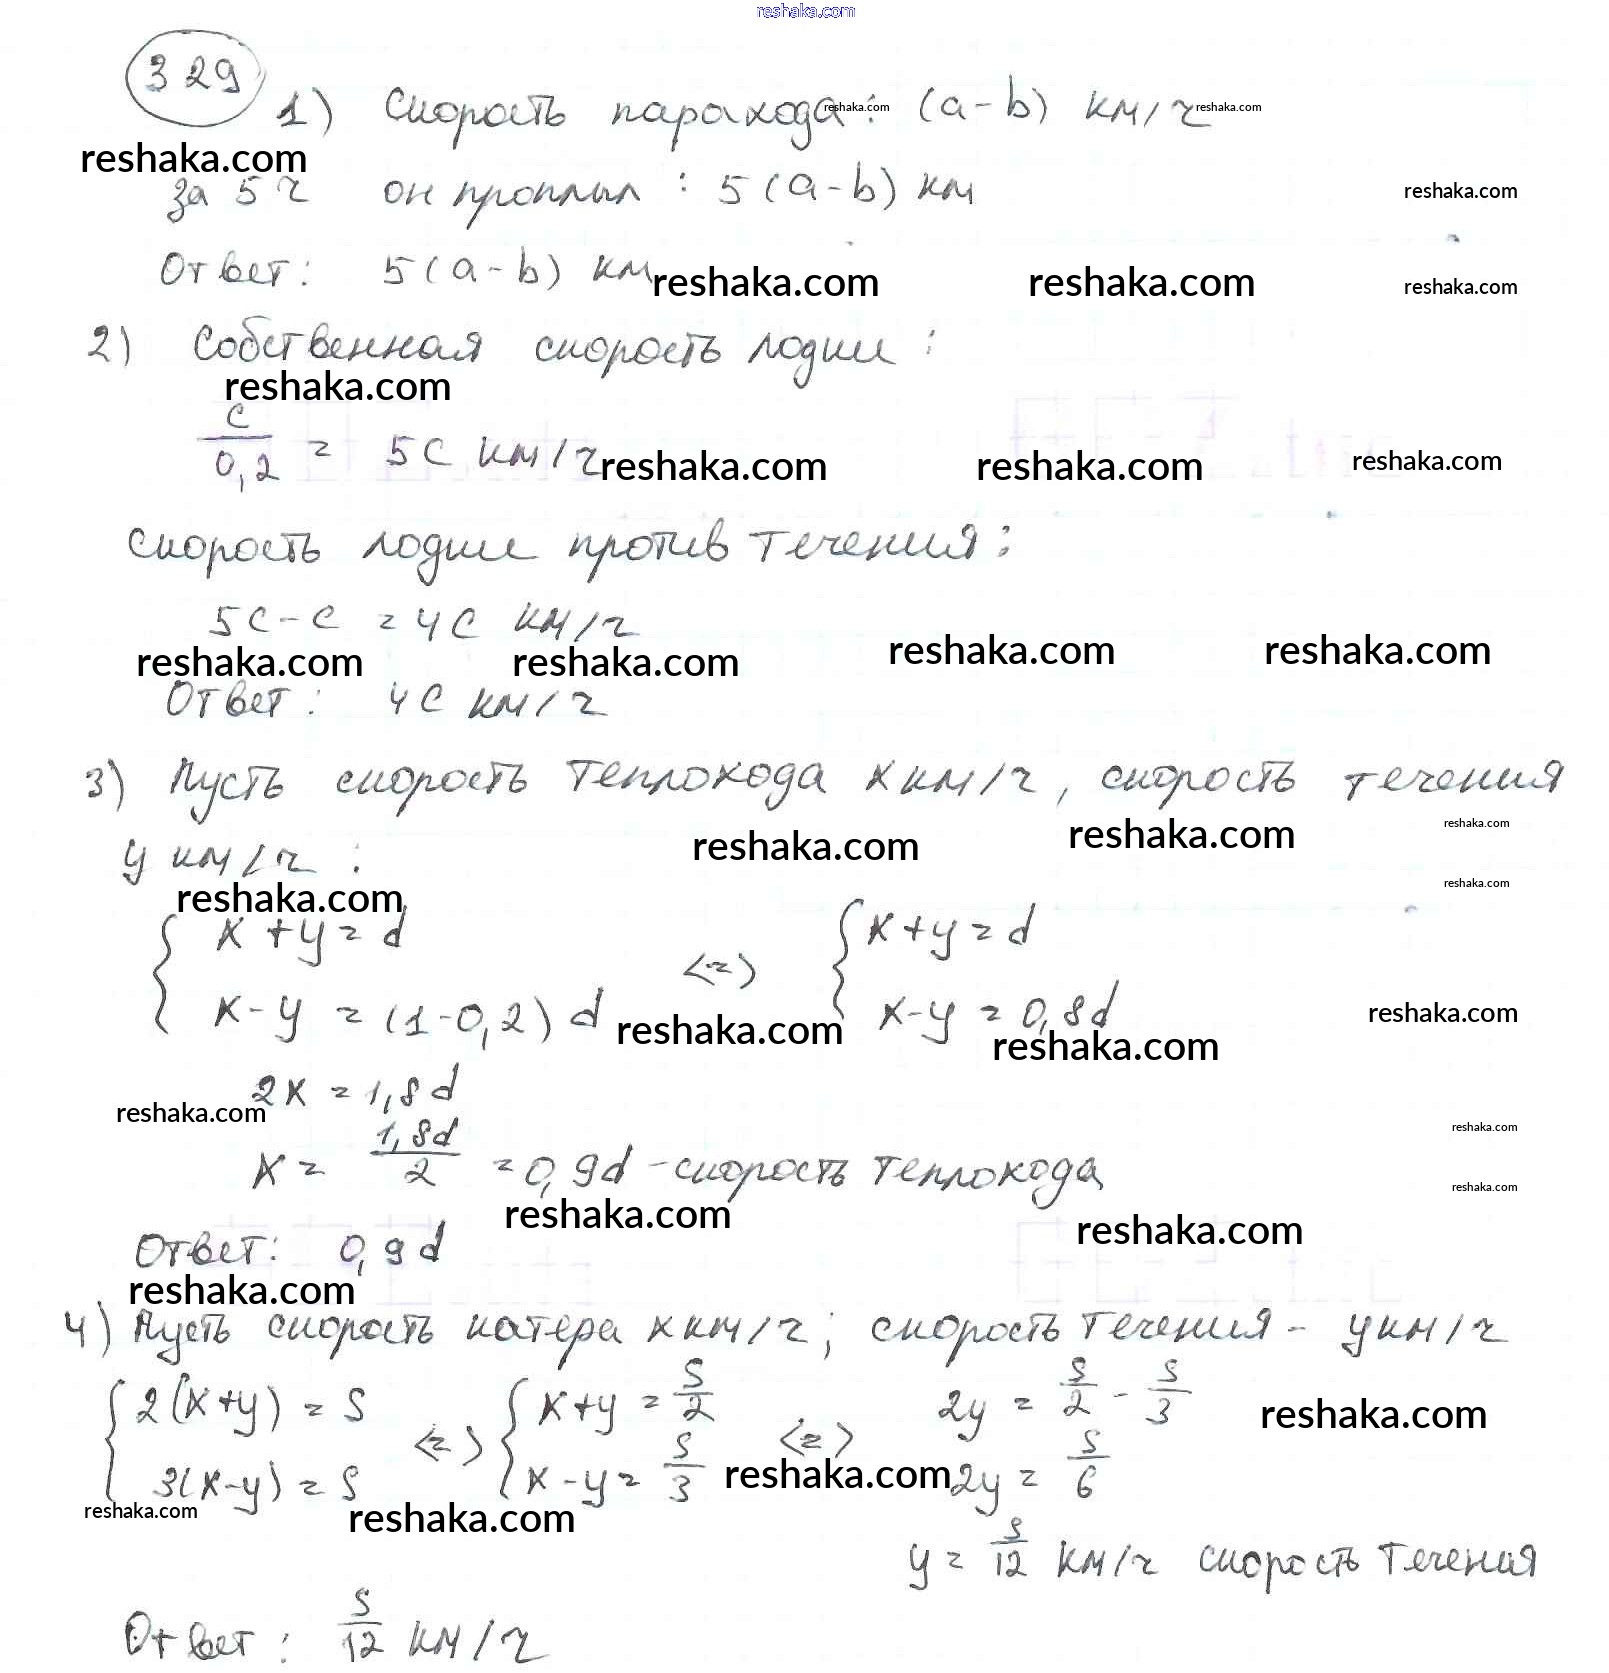 reshaka.com
329
1) Скорость парахода: (a-b) км/ч
reshaka.com reshaka.com
reshaka.com
за 5 ч он проплыл: 5(a-b) км
reshaka.com
Ответ: 5(a-b) км
reshaka.com reshaka.com reshaka.com
2) Собственная скорость лодки:
reshaka.com
c/0,2 = 5c км/ч
reshaka.com reshaka.com reshaka.com
Скорость лодки против течения:
5c-c = 4c км/ч
reshaka.com reshaka.com reshaka.com reshaka.com
Ответ: 4c км/ч
3) Пусть скорость теплохода x км/ч, скорость течения
reshaka.com reshaka.com reshaka.com
y км/ч:
reshaka.com reshaka.com
{ x+y = d { x+y = d
<=>
x-y = (1-0,2)d x-y = 0,8d
reshaka.com reshaka.com reshaka.com
2x = 1,8d
reshaka.com reshaka.com
x = 1,8d/2 = 0,9d - скорость теплохода
reshaka.com
reshaka.com reshaka.com
Ответ: 0,9d
reshaka.com
4) Пусть скорость катера x км/ч; скорость течения - y км/ч
{ 2(x+y) = S <=> { x+y = S/2 <=> 2y = S/2 - S/3
reshaka.com
3(x-y) = S x-y = S/3 2y = S/6
reshaka.com
reshaka.com reshaka.com
y = S/12 км/ч скорость течения
Ответ: S/12 км/ч